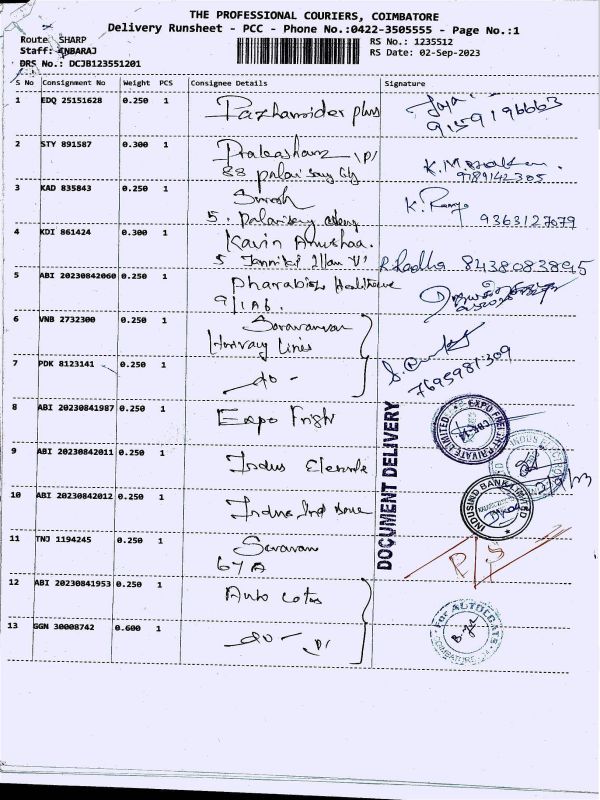 THE PROFESSIONAL COURIERS, COIMBATORE
Delivery Runsheet - PCC - Phone No.:0422-3505555 - Page No.:1
Route SHARP
RS No.: 1235512
Staff: ANBARAJ
RS Date: 02-Sep-2023
DRS No.: DCJB123551201
S No Consignment No Weight PCS Consignee Details Signature
1 EDQ 25151628 0.250 1 Pazhamudar plus Jaya
9159196663
2 STY 891587 0.300 1 Prakasham
88 palaisamy K.M.
9789142305
3 KAD 835843 0.250 1 Suresh K.
5. palanisamy 9363127079
4 KDI 861424 0.300 1 Kavin Anushaa.
5 Illam Radha 8438083895
5 ABI 20230842060 0.250 1 Healthcare
9/1A6.
6 VNB 2732300 0.250 1 Saravanan
Lines S.
7695981309
7 PDK 8123141 0.250 1 -do-
DOCUMENT DELIVERY
8 ABI 20230841987 0.250 1 Expo Fright EXPO FREIGHT PRIVATE LIMITED
9 ABI 20230842011 0.250 1 Indus
2/9/23
10 ABI 20230842012 0.250 1 IndusInd Bank INDUSIND BANK LIMITED
11 TNJ 1194245 0.250 1 Saravan
67A P/S
12 ABI 20230841953 0.250 1 Auto
For AUTOCRATS
COIMBATORE
13 GGN 30008742 0.600 1 -do-